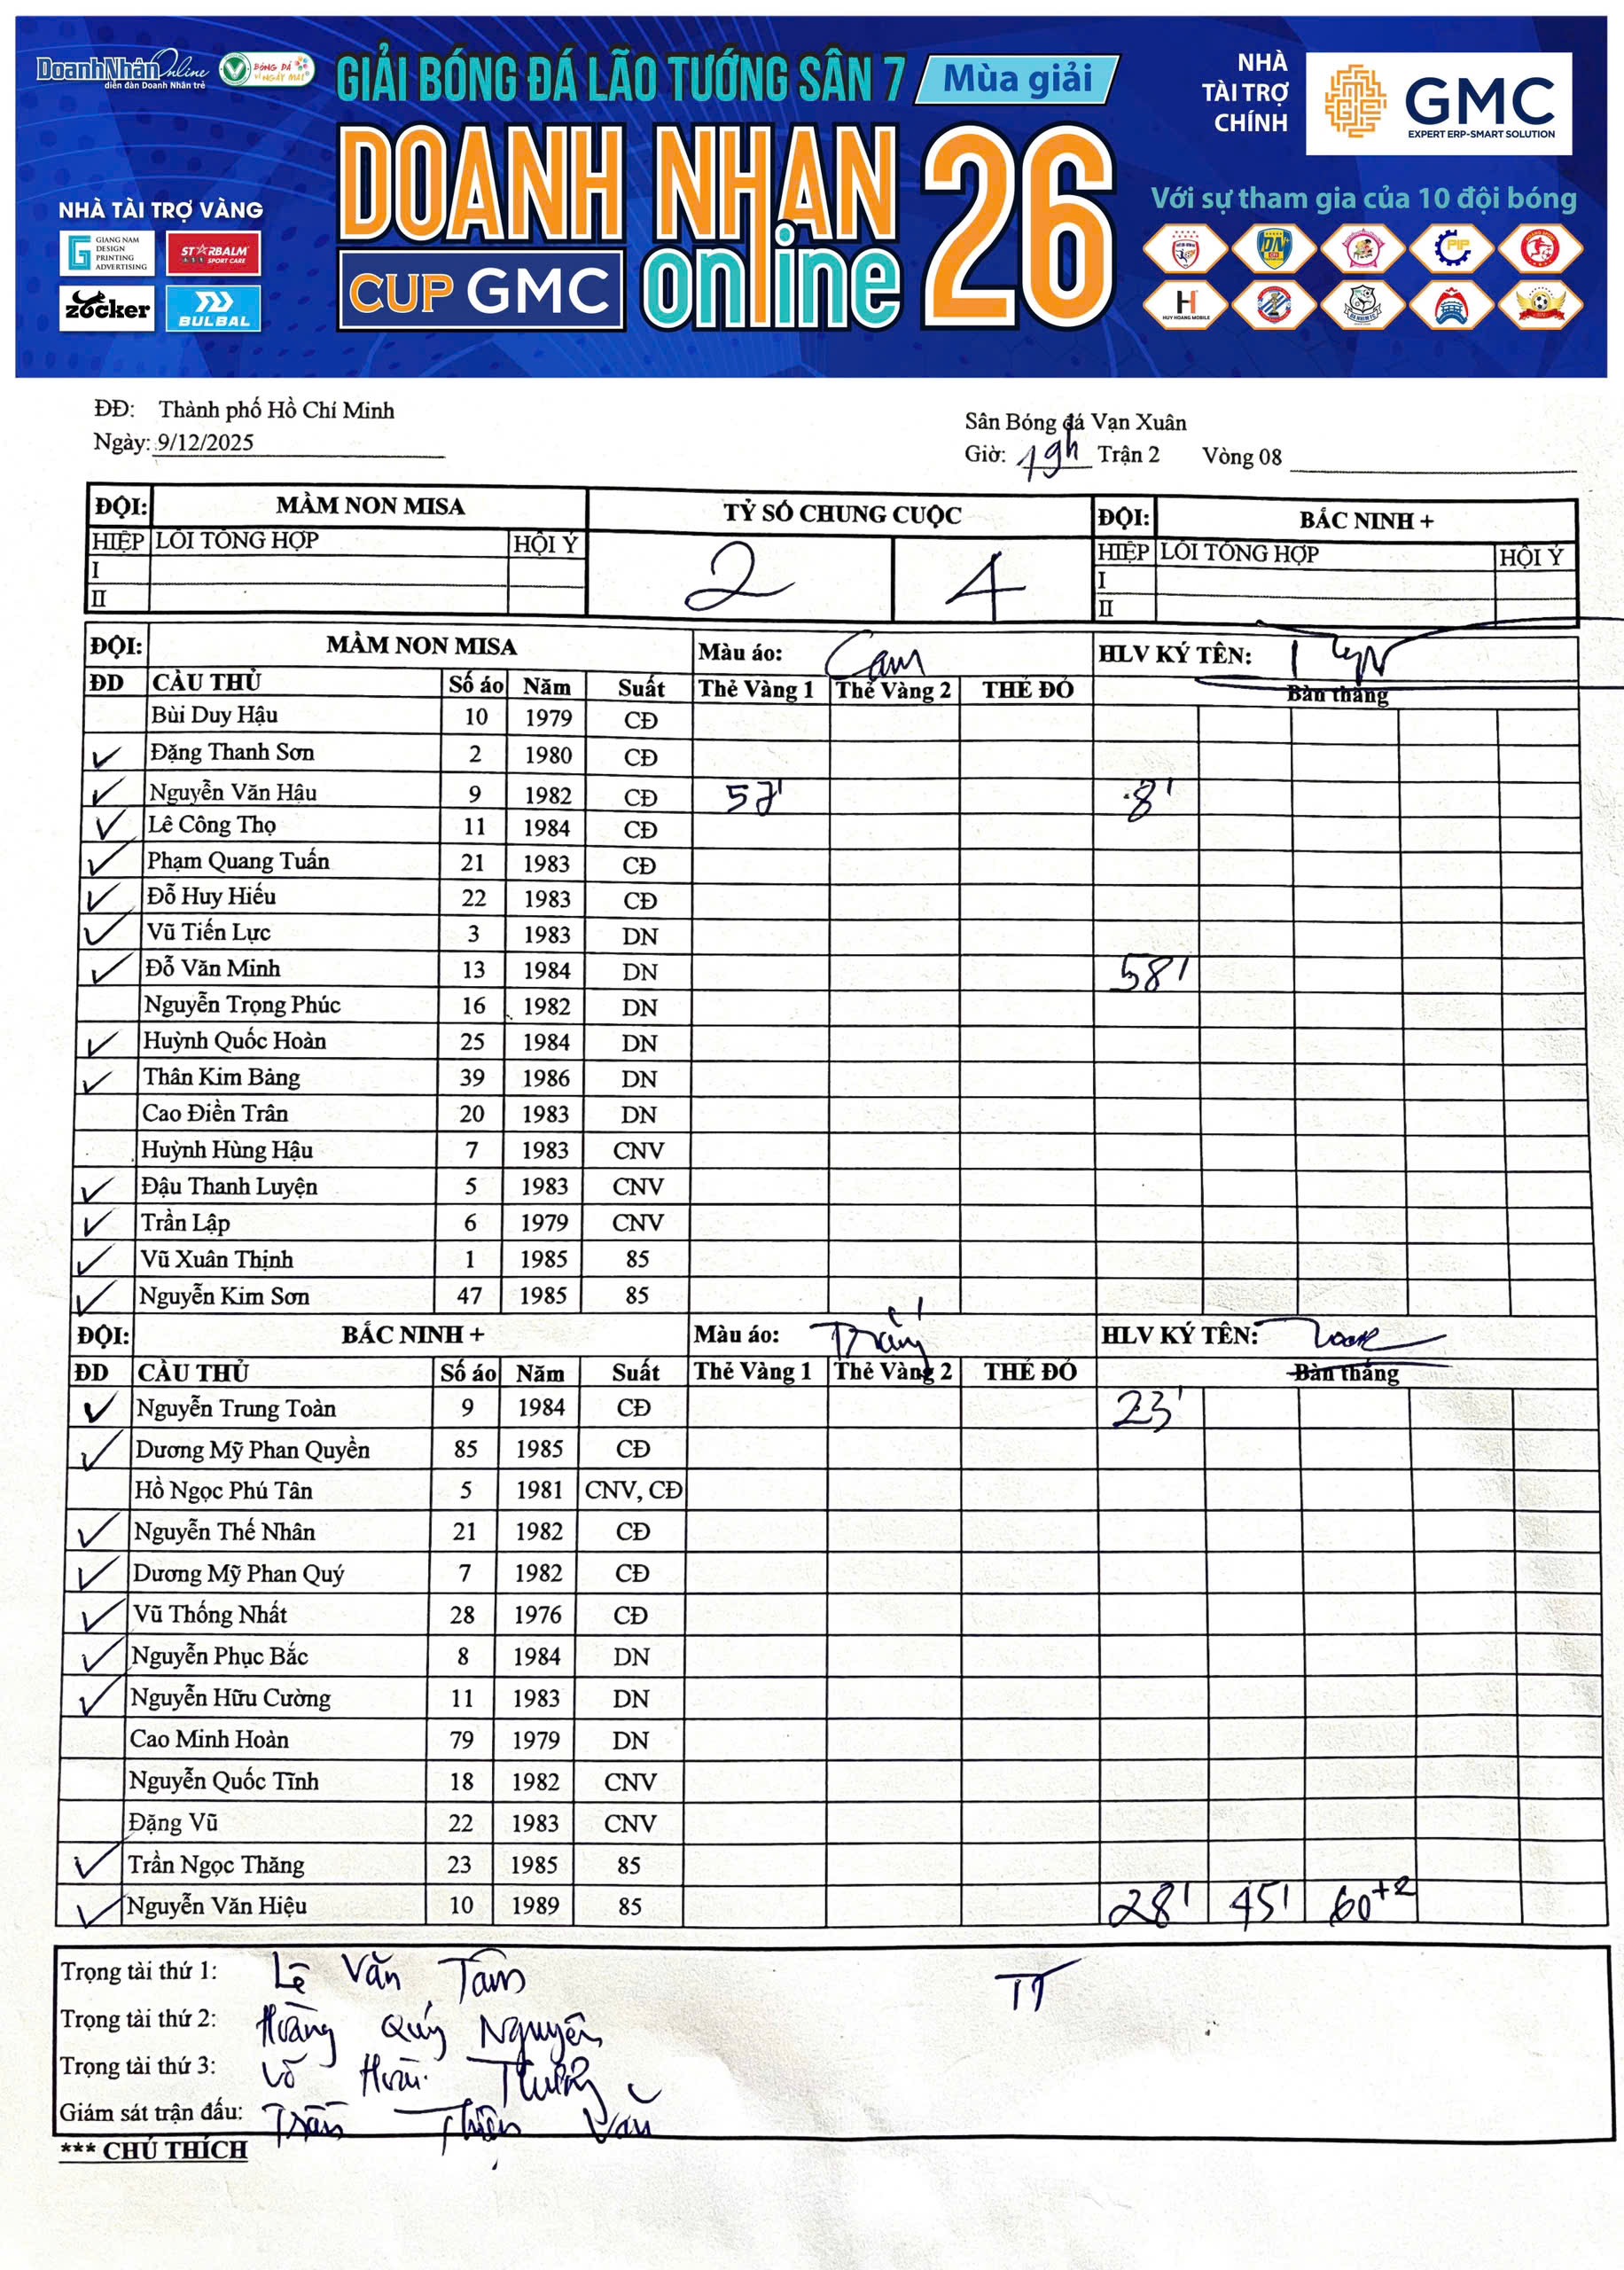 DoanhNhân Online
diễn đàn Doanh Nhân trẻ
BÓNG ĐÁ
GIẢI BÓNG ĐÁ LÃO TƯỚNG SÂN 7 Mùa giải
DOANH NHAN online 26
CUP GMC
NHÀ TÀI TRỢ VÀNG
GIANG NAM
DESIGN
PRINTING
ADVERTISING
STARBALM
SPORT CARE
zocker
BULBAL
NHÀ
TÀI TRỢ
CHÍNH
GMC
EXPERT ERP-SMART SOLUTION
Với sự tham gia của 10 đội bóng
DN
PIP
HUY HOANG MOBILE
ĐĐ: Thành phố Hồ Chí Minh
Sân Bóng đá Vạn Xuân
Ngày: 9/12/2025
Giờ: 19h Trận 2 Vòng 08
ĐỘI: MẦM NON MISA TỶ SỐ CHUNG CUỘC ĐỘI: BẮC NINH +
HIỆP LỖI TỔNG HỢP HỘI Ý 2 4 HIỆP LỖI TỔNG HỢP HỘI Ý
I I
II II
ĐỘI: MẦM NON MISA Màu áo: Cam HLV KÝ TÊN:
ĐD CẦU THỦ Số áo Năm Suất Thẻ Vàng 1 Thẻ Vàng 2 THẺ ĐỎ Bàn thắng
Bùi Duy Hậu 10 1979 CĐ
✓ Đặng Thanh Sơn 2 1980 CĐ
✓ Nguyễn Văn Hậu 9 1982 CĐ 57' 8'
✓ Lê Công Thọ 11 1984 CĐ
✓ Phạm Quang Tuấn 21 1983 CĐ
✓ Đỗ Huy Hiếu 22 1983 CĐ
✓ Vũ Tiến Lực 3 1983 DN
✓ Đỗ Văn Minh 13 1984 DN 58'
Nguyễn Trọng Phúc 16 1982 DN
✓ Huỳnh Quốc Hoàn 25 1984 DN
✓ Thân Kim Bảng 39 1986 DN
Cao Điền Trân 20 1983 DN
Huỳnh Hùng Hậu 7 1983 CNV
✓ Đậu Thanh Luyện 5 1983 CNV
✓ Trần Lập 6 1979 CNV
✓ Vũ Xuân Thịnh 1 1985 85
✓ Nguyễn Kim Sơn 47 1985 85
ĐỘI: BẮC NINH + Màu áo: Trắng HLV KÝ TÊN:
ĐD CẦU THỦ Số áo Năm Suất Thẻ Vàng 1 Thẻ Vàng 2 THẺ ĐỎ Bàn thắng
✓ Nguyễn Trung Toàn 9 1984 CĐ 23'
✓ Dương Mỹ Phan Quyền 85 1985 CĐ
Hồ Ngọc Phú Tân 5 1981 CNV, CĐ
✓ Nguyễn Thế Nhân 21 1982 CĐ
✓ Dương Mỹ Phan Quý 7 1982 CĐ
✓ Vũ Thống Nhất 28 1976 CĐ
✓ Nguyễn Phục Bắc 8 1984 DN
✓ Nguyễn Hữu Cường 11 1983 DN
Cao Minh Hoàn 79 1979 DN
Nguyễn Quốc Tĩnh 18 1982 CNV
Đặng Vũ 22 1983 CNV
✓ Trần Ngọc Thăng 23 1985 85
✓ Nguyễn Văn Hiệu 10 1989 85 28' 45' 60+2
Trọng tài thứ 1: Lê Văn Tám TT
Trọng tài thứ 2: Hoàng Quý Nguyên
Trọng tài thứ 3: Võ Hoài Thương
Giám sát trận đấu: Trần Thiện Văn
*** CHÚ THÍCH